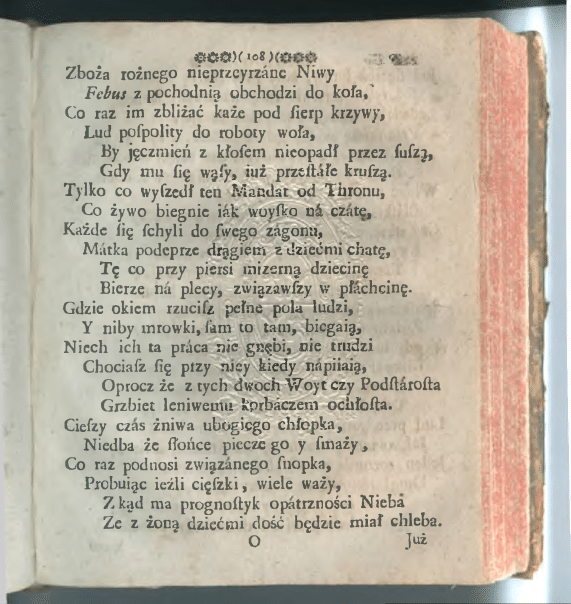 )( 108 )(
Zboża rożnego nieprzeyrzáne Niwy
Febus z pochodnią obchodzi do koła,
Co raz im zbliżać każe pod ſierp krzywy,
Lud poſpolity do roboty woła,
By jęczmień z kłoſem nieopadł przez ſuſzą,
Gdy mu ſię wąſy, iuż przeſtáłe kruſzą.
Tylko co wyſzedł ten Mandat od Thronu,
Co żywo biegnie iák woyſko ná czátę,
Każde ſię ſchyli do ſwego zagonu,
Mátka podeprze drągiem z dziećmi chatę,
Tę co przy pierſi mizerną dziecinę
Bierze ná plecy, związawſzy w płáchcinę.
Gdzie okiem rzuciſz pełne pola ludzi,
Y niby mrowki, ſam to tam, biegaią,
Niech ich ta práca nie gnębi, nie trudzi
Chociaſz ſię przy niey kiedy nápiiaią,
Oprocz że z tych dwoch Woyt czy Podſtároſta
Grzbiet leniwemu korbáczem ochłoſta.
Cieſzy czás żniwa ubogiego chłopka,
Niedba że ſłońce piecze go y ſmaży,
Co raz podnosi związánego ſnopka,
Probuiąc ieźli cięſzki, wiele waży,
Z kąd ma prognoſtyk opátrzności Nieba
Ze z żoną dziećmi dość będzie miał chleba.
O Już